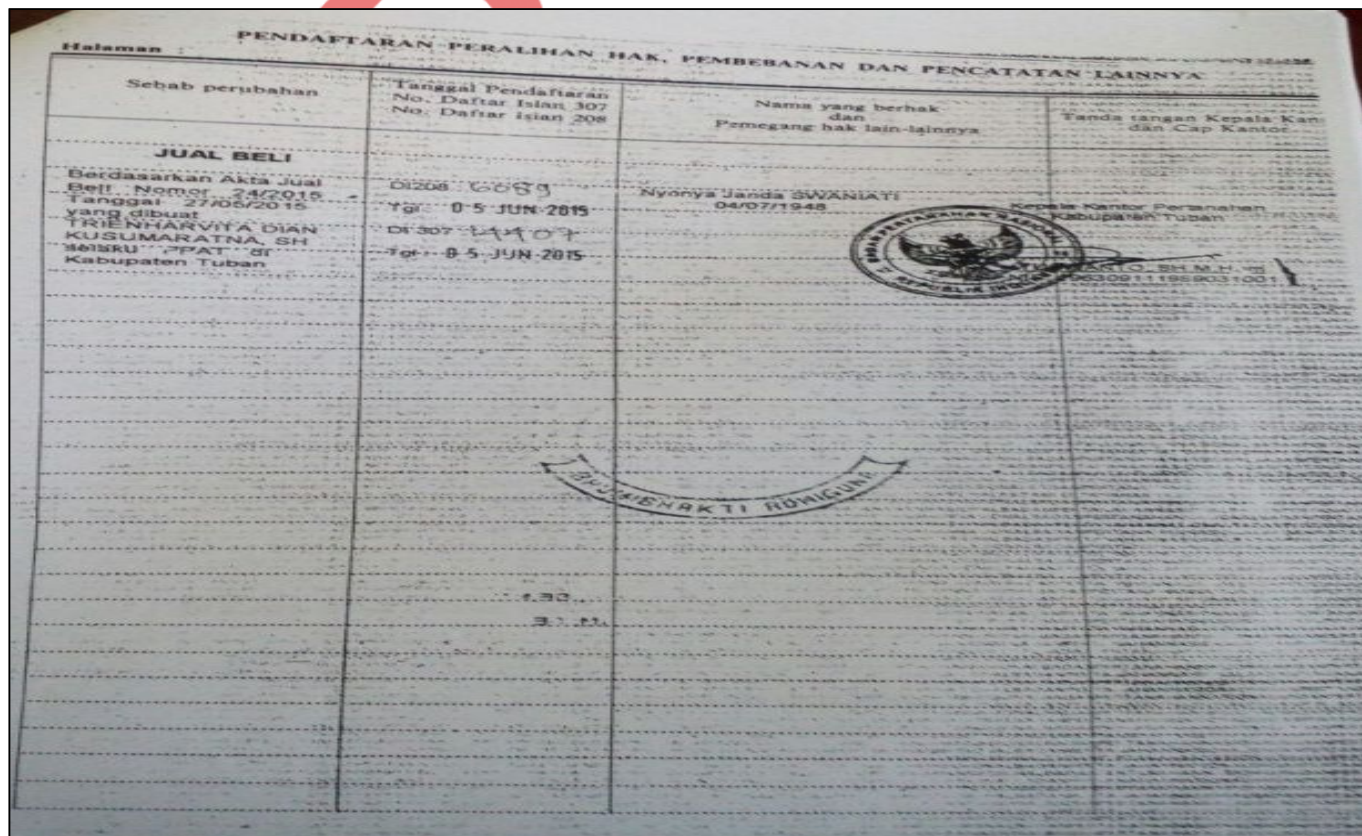 PENDAFTARAN PERALIHAN HAK, PEMBEBANAN DAN PENCATATAN LAINNYA
Halaman :
Sebab perubahan
Tanggal Pendaftaran
No. Daftar Isian 307
No. Daftar Isian 208
Nama yang berhak
dan
Pemegang hak lain-lainnya
Tanda tangan Kepala Kan
dan Cap Kantor
JUAL BELI
Berdasarkan Akta Jual
Beli Nomor 24/2015
Tanggal 27/05/2015
yang dibuat
TRIENHARVITA DIAN
KUSUMARATNA, SH
PPAT di
Kabupaten Tuban
DI208 6089
Tgl. 05 JUN 2015
DI 307 14407
Tgl. 05 JUN 2015
Nyonya Janda SWANIATI
04/07/1948
Kepala Kantor Pertanahan
Kabupaten Tuban
BADAN PERTANAHAN NASIONAL
REPUBLIK INDONESIA
ANTO, SH.M.H
BHUMIBHAKTI ADHIGUNA